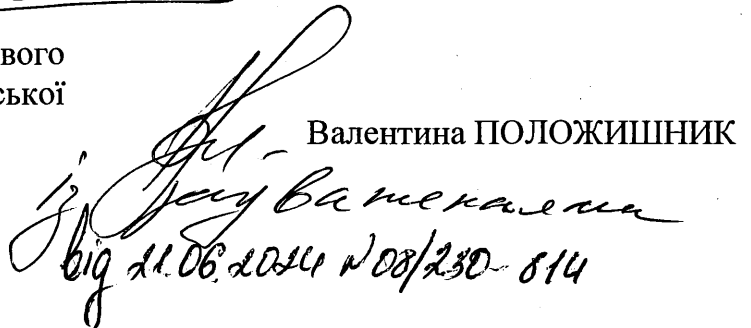 вого
ської
Валентина ПОЛОЖИШНИК
із зауваженнями
від 21.06.2024 №08/230-814